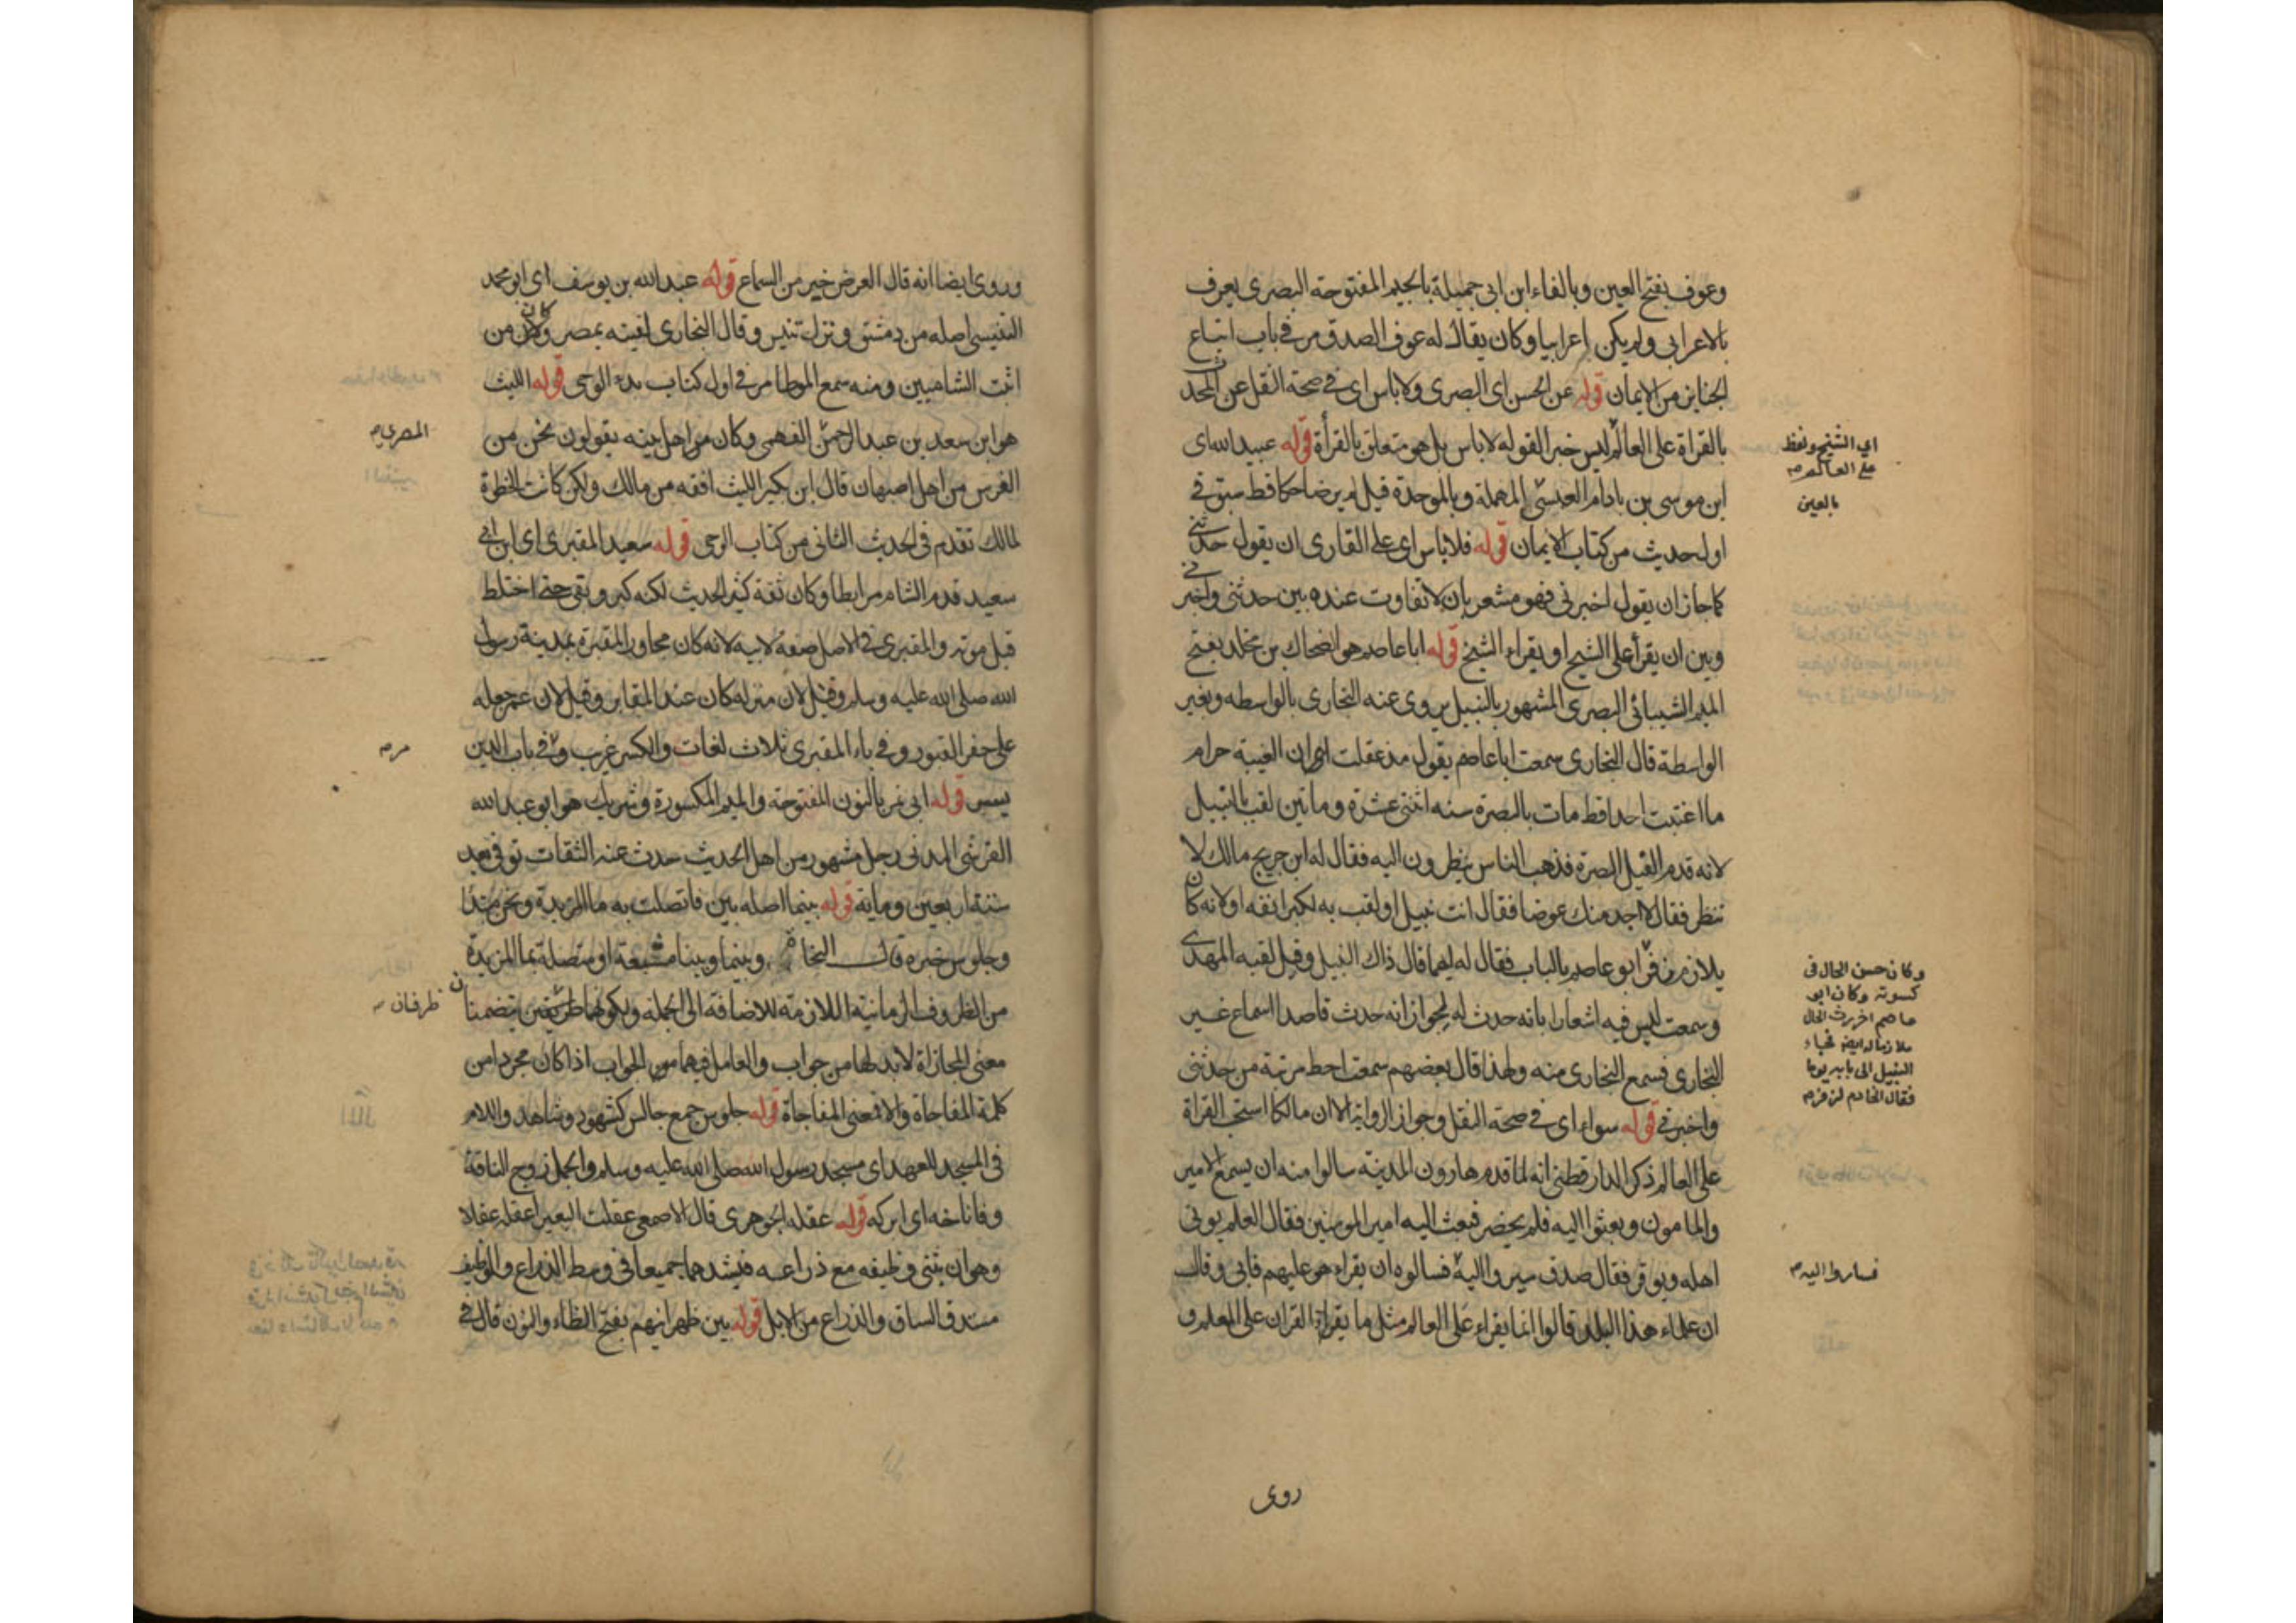 وعوف بفتح العين وبالفاء ابن ابى جميلة بالجيم المفتوحة البصرى يعرف
بالاعرابى ولم يكن اعرابيا وكان يقال له عوف الصدق مر فى باب اتباع
الجنايز من الايمان قوله عن الحسن اى البصرى ولا باس اى فى صحة النقل عن المحدث
بالقراة على العالم ليس خبرا لقوله لا باس بل هو متعلق بالقرأة قوله عبيد الله اى
اى الشيخ ولفظ
على العالم صح
ابن موسى بن باذام العبسى المهملة وبالموحدة قيل لم ير ضاحكا قط سبق فى
بالعين
اول حديث من كتاب الايمان قوله فلا باس اى على القارى ان يقول حدثنى
كما جاز ان يقول اخبرنى فهو مشعر بان لا تفاوت عنده بين حدثنى واخبرنى
وبين ان يقرأ على الشيخ او يقراء الشيخ قوله ابا عاصم هو الضحاك بن مخلد بفتح
الميم الشيبانى البصرى المشهور بالنبيل يروى عنه البخارى بالواسطه وبغير
الواسطة قال البخارى سمعت ابا عاصم يقول مذ عقلت ان الغيبة حرام
ما اغتبت احدا قط مات بالبصرة سنه اثنتى عشرة وماتين لقب بالنبيل
لانه قدم الفيل البصرة فذهب الناس ينظرون اليه فقال له ابن جريج مالك لا
تنظر فقال لا اجد منك عوضا فقال انت نبيل او لقب به لكبر انفه او لانه كان
يلازم زفر ابو عاصم بالباب فقال له ايهما قال ذاك النبيل وقيل لقبه المهدى
وكان حسن الحال فى
كسوته وكان ابو
عاصم اخر رث الحال
ملازما له ايضا فجاء
النبيل الى بابه يوما
فقال الخادم لزفر صح
وسمعت ليس فيه اشعارا بانه حدث له لجواز انه حدث قاصدا اسماع غير
البخارى فسمع البخارى منه ولهذا قال بعضهم سمعت احط مرتبة من حدثنى
واخبرنى قوله سواء اى فى صحة النقل وجواز الرواية الا ان مالكا استحب القراة
على العالم ذكر الدارقطنى انه لما قدم هارون المدينة سالوا منه ان يسمع الامين
والمامون وبعثوا اليه فلم يحضر فبعث اليه امير المومنين فقال العلم يوتى
اهله ويوقر فقال صدق سيروا اليه فسالوه ان يقراء هو عليهم فابى وقال
فساروا اليه صح
ان علماء هذا البلد قالوا انما يقراء على العالم مثل ما يقراء القران على المعلم و
روى
وروى ايضا انه قال العرض خير من السماع قوله عبد الله بن يوسف اى ابو محمد
التنيسى اصله من دمشق ونزل تنيس وقال البخارى لقيته بمصر وكان من
اثبت الشاميين ومنه سمع الموطا مر فى اول كتاب بدء الوحى قوله الليث
هو ابن سعد بن عبد الرحمن الفهمى وكان من اهل بيته يقولون نحن من
المصرى صح
الفرس من اهل اصبهان قال ابن بكير الليث افقه من مالك ولكن كانت الحظوة
لمالك تقدم فى الحديث الثانى من كتاب الوحى قوله سعيد المقبرى اى ابن ابى
سعيد قدم الشام مرابطا وكان ثقة كثير الحديث لكنه كبر وبقى حتى اختلط
قبل موته والمقبرى فى الاصل صفة لابيه لانه كان مجاور المقبرة بمدينة رسول
الله صلى الله عليه وسلم وقيل لان منزله كان عند المقابر وقيل لان عمر جعله
على حفر القبور وفى باء المقبرى ثلاث لغات والكسر غريب وفى باب الدين
مر صح
يسر قوله ابى نمر بالنون المفتوحة والميم المكسورة وشريك هو ابو عبد الله
القرشى المدنى رجل مشهور من اهل الحديث حدث عنه الثقات توفى بعد
سنة اربعين وماية قوله بينما اصله بين فاتصلت به ما المزيدة ونحن مبتدا
وجلوس خبره قال النحاة وبينما وبينا مشبعة او متصلة بما المزيدة
من الظروف الزمانية اللازمة للاضافة الى الجملة ولكونهما متضمنان
ظرفان صح
معنى المجازاة لا بد لهما من جواب والعامل فيهما هو الجواب اذا كان مجردا من
كلمة المفاجاة والا فمعنى المفاجاة قوله جلوس جمع جالس كشهود وشاهد واللام
فى المسجد للعهد اى مسجد رسول الله صلى الله عليه وسلم والجمل زوج الناقة
وفاناخه اى ابركه قوله عقله الجوهرى قال الاصمعى عقلت البعير اعقله عقلا
وهو ان يثنى وظيفه مع ذراعه فيشدهما جميعا فى وسط الذراع والوظيف
مستدق الساق والذراع من الابل قوله بين ظهرانيهم بفتح الظاء والنون قال فى